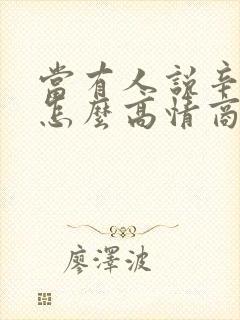 當有人說辛
怎麼高情商
廖澤波